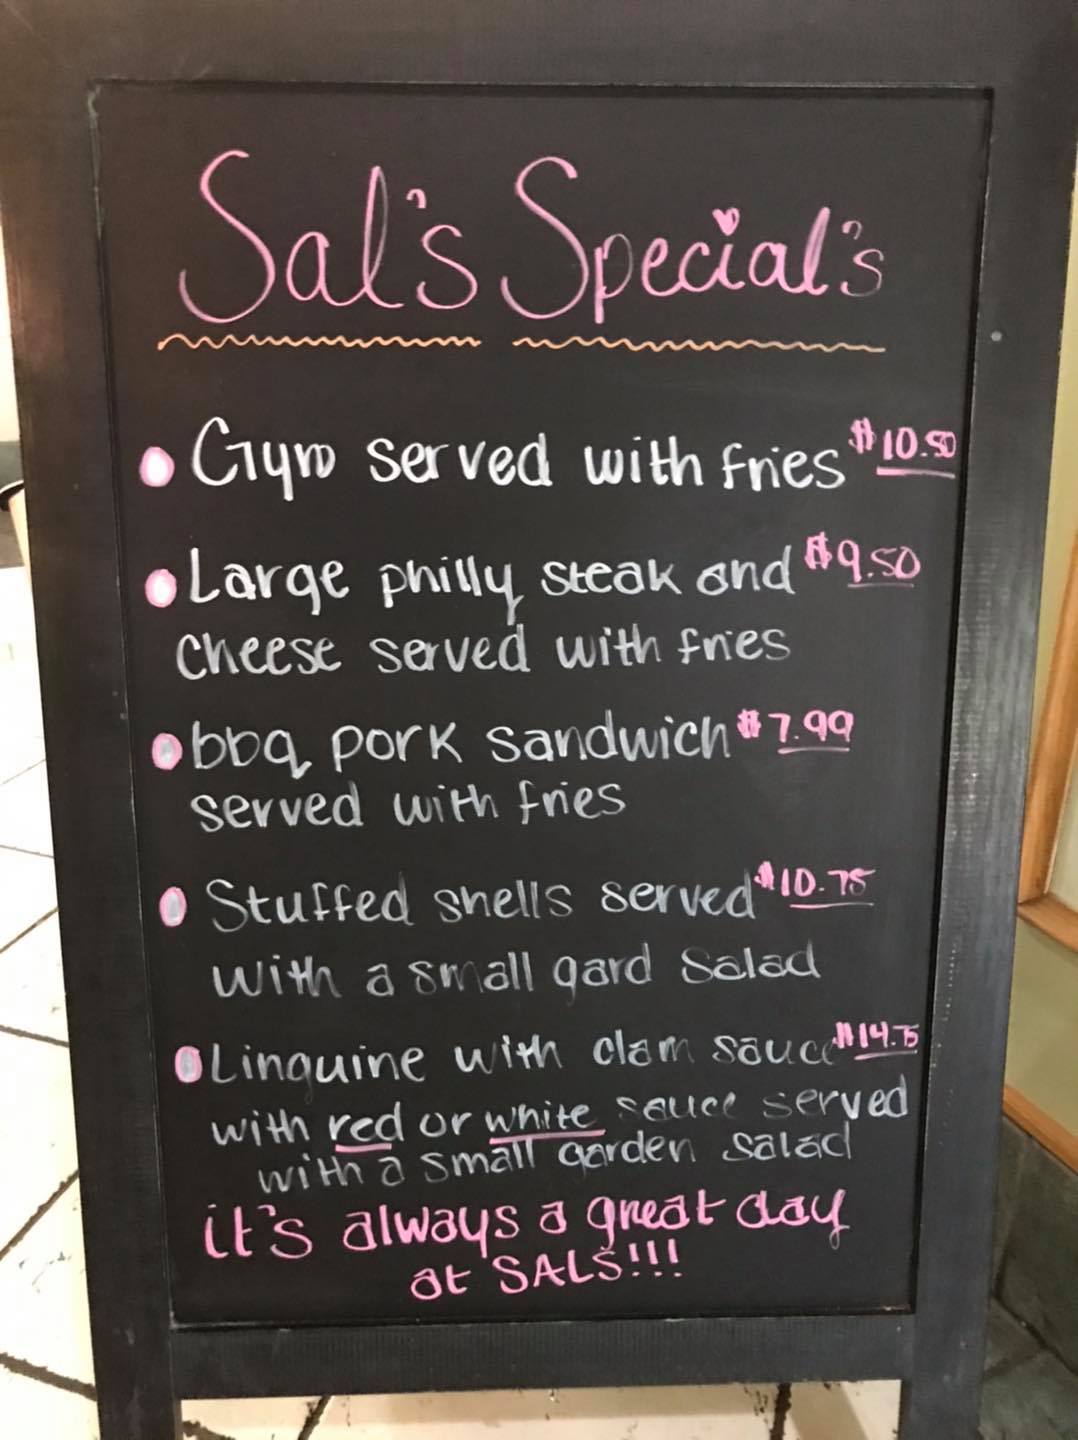 Sal's Special's
Gyro served with fries $10.50
Large philly steak and $9.50
cheese served with fries
bbq pork sandwich $7.99
served with fries
Stuffed shells served $10.75
with a small gard salad
Linguine with clam sauce $14.75
with red or white sauce served
with a small garden salad
it's always a great day
at SALS!!!